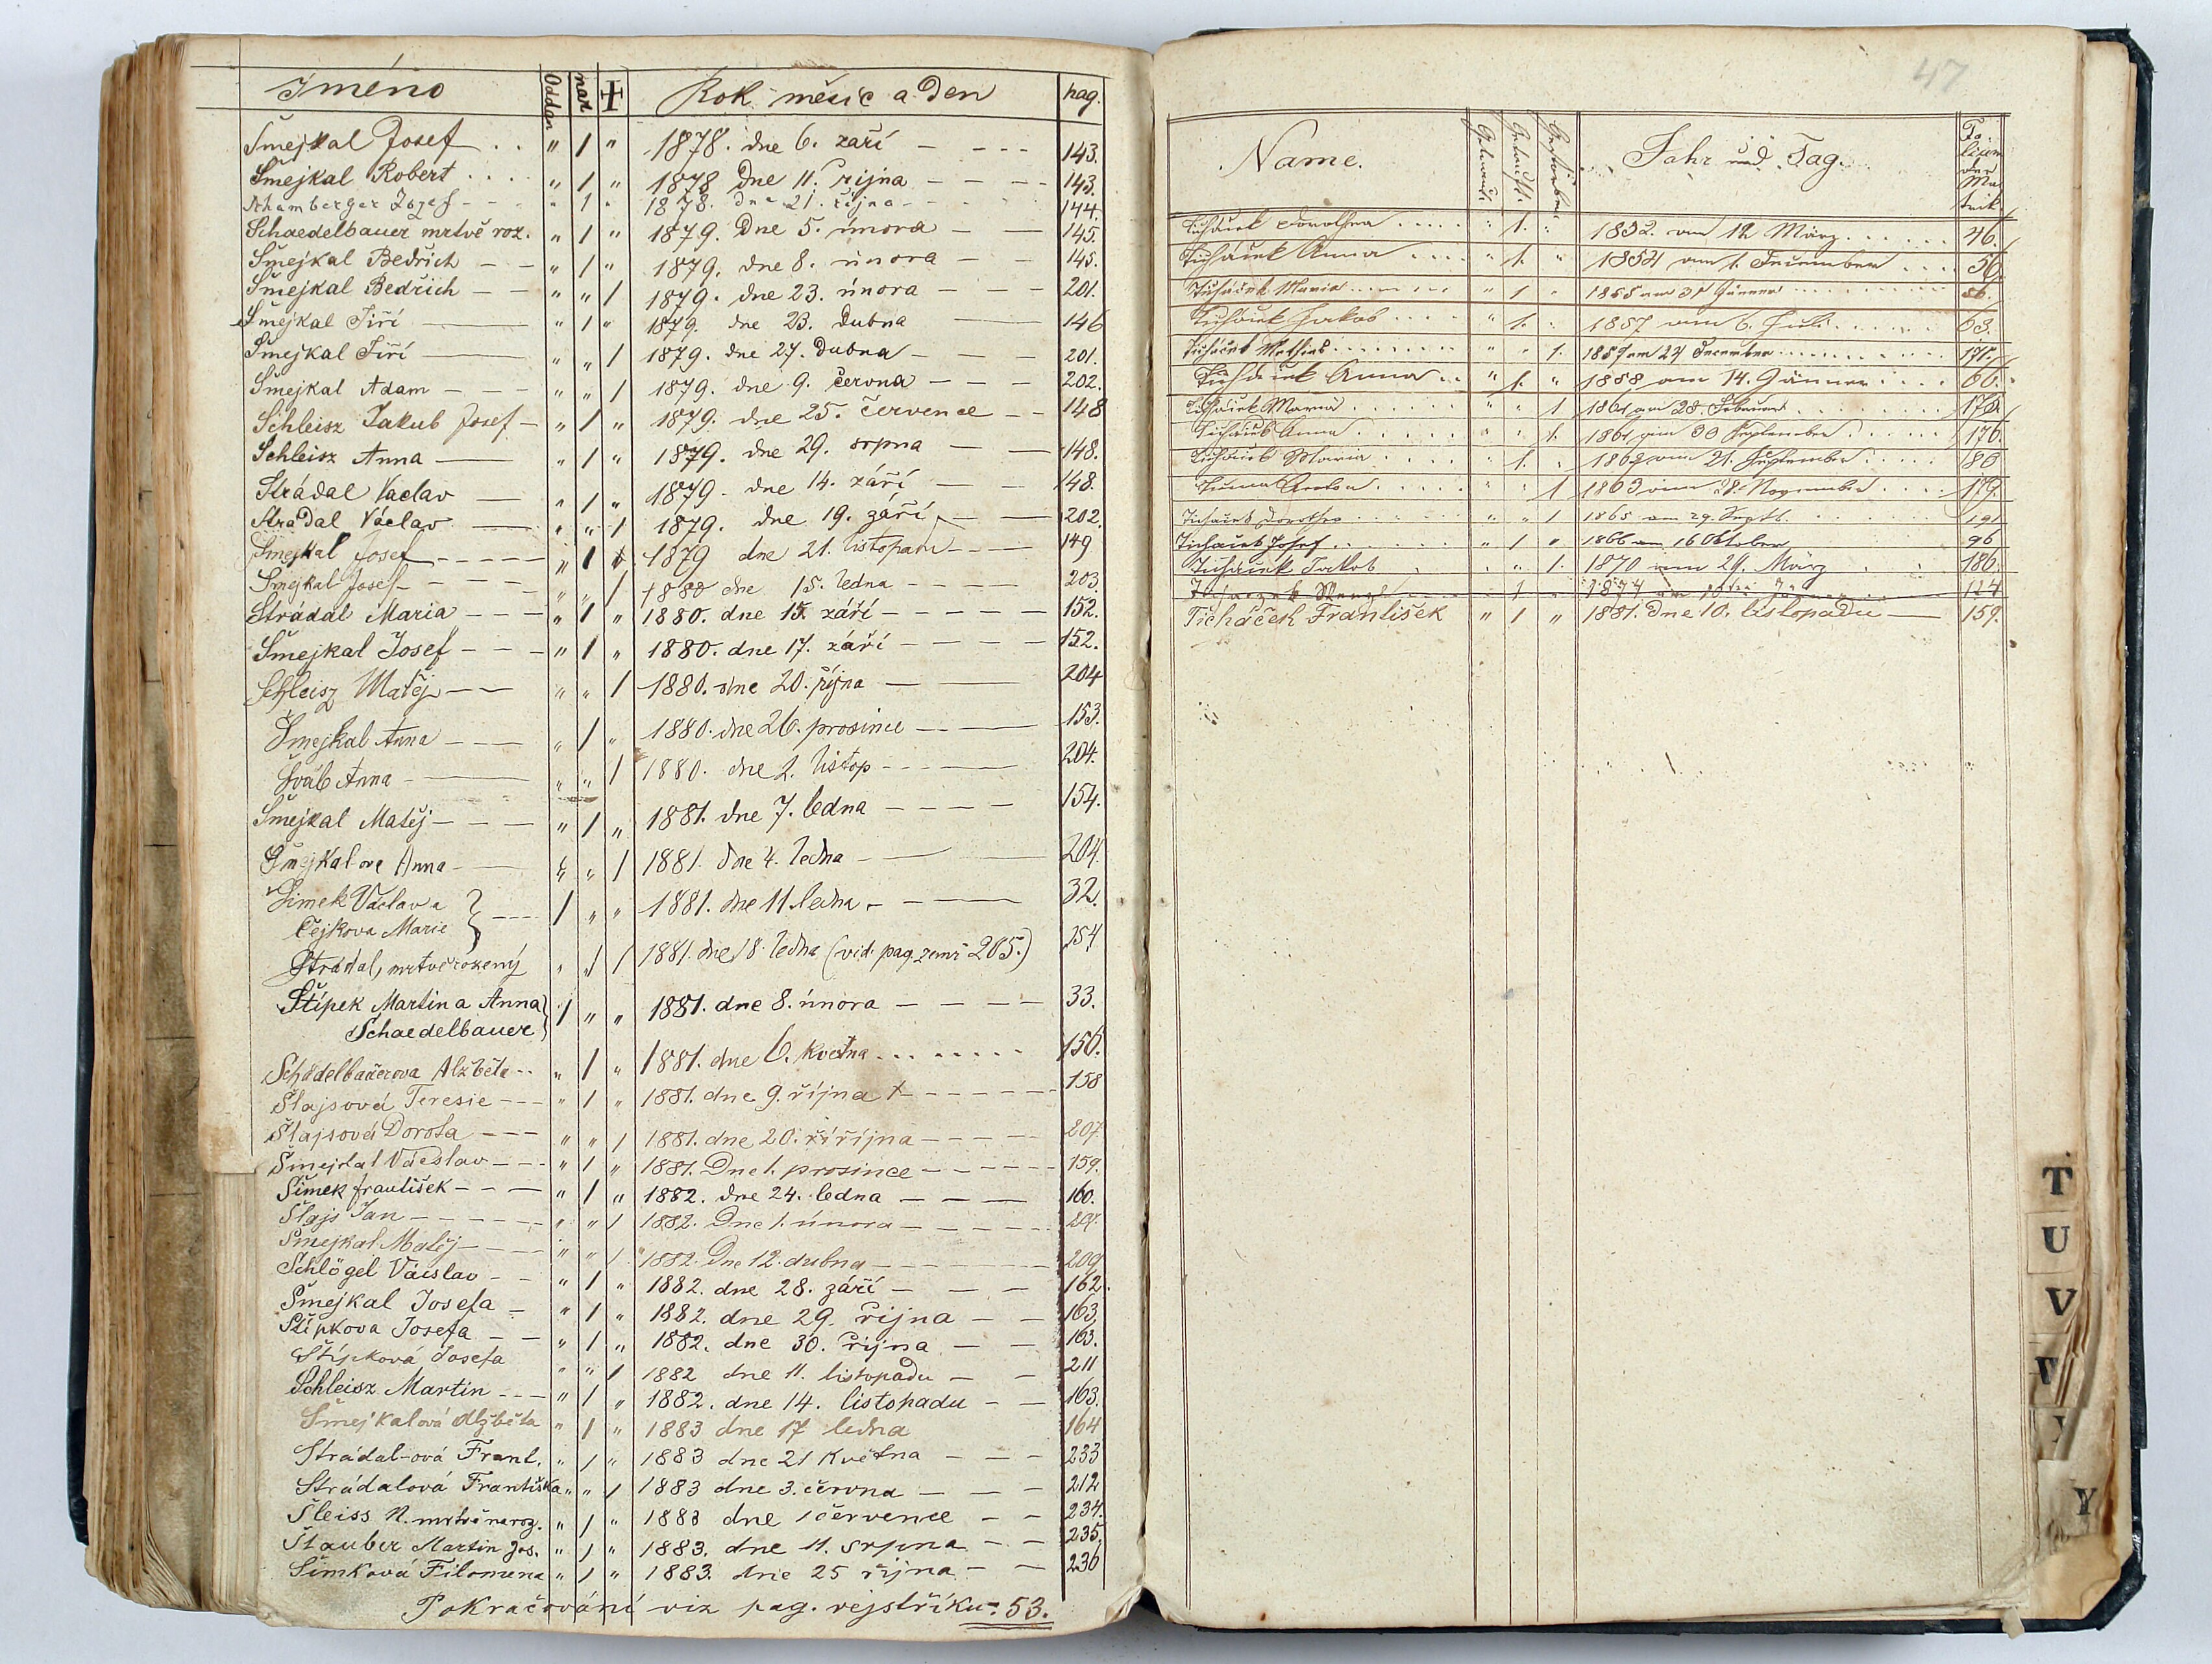 Jméno Oddan nar. + Rok měsíc a Den pag.
Šmejkal Josef . . " / " 1878. dne 6. září — - - - 143.
Šmejkal Robert . . . . " / " 1878 Dne 11. října — — — - 143.
Schamberger Josef - - " 1 " 1878. dne 21. října - - 144.
Schaedelbauer mrtvě roz. " / " 1879. Dne 5. února — — 145.
Šmejkal Bedřich — — " / " 1879. dne 8. února — — 145.
Šmejkal Bedřich — — " " / 1879. dne 23. února — — — 201.
Šmejkal Jiří — " / " 1879. dne 23. Dubna — 146
Šmejkal Jiří — " " / 1879. dne 27. Dubna — — 201.
Šmejkal Adam — — — " " / 1879. dne 9. června — — — 202.
Schleisz Jakub Josef — " / " 1879. dne 25. července — — 148
Schleisz Anna — " / " 1879. dne 29. srpna — — 148.
Strádal Vaclav — " / " 1879. dne 14. září — — 148.
Stradal Václav — " " / 1879. dne 19. září — — 202.
Šmejkal Josef - - - - - " / 1879 dne 21. listopadu - - — 149
Šmejkal Josef - — — - " " / 1880 dne 15. ledna - - - - - 203.
Strádal Maria — — — " / " 1880. dne 15. září — - - - - 152.
Šmejkal Josef — — — " / " 1880. dne 17. září — — — - 152.
Schleisz Matěj — — " " / 1880. dne 20. října — — 204
Šmejkal Anna — — — " / " 1880. dne 26. prosince — — 153.
Šváb Anna — — " " / 1880. dne 2. listop - - - — 204.
Šmejkal Matěj — — — " / " 1881. dne 7. ledna — — — — 154.
Šmejkalova Anna — — " " / 1881. dne 4. ledna — — 204.
Šimek Václav a
Čejkova Marie } - - - - / " " 1881. dne 11. ledna — — — 32.
Strádal, mrtvěrozený " / / 1881. dne 18. ledna (vid. pag. zemř 205.) 154
Štípek Martin a Anna
Schaedelbauer } / " " 1881. dne 8. února — — — — 33.
Schädelbauerova Alžběta - - " / " 1881. dne 6. května . . . . . . . . 156.
Šlajsová Teresie - - - " / " 1881. dne 9. října - - - - - - 158
Šlajsová Dorota — — — " " / 1881. dne 20. říříjna — — — — 207.
Šmejkal Václav - - - " / " 1881. Dne 1. prosince - - - - - - 159.
Šimek František - - — " / " 1882. dne 24. ledna — — — 160.
Šlajs Jan - - - - - - " " / 1882. Dne 1. února — - - - - -
Šmejkal Matěj — - - - " " / 1882. Dne 12. dubna — - - - - - 209
Schlögel Václav - - " / " 1882. dne 28. září — — — 162.
Šmejkal Josefa — " / " 1882. dne 29. října — — 163.
Štípkova Josefa — — " / " 1882. dne 30. října — — 163.
Štípková Josefa " " / 1882 dne 11. listopadu — — 211
Schleisz Martin - - — " / " 1882. dne 14. listopadu — — 163.
Šmejkalová Alžběta " / " 1883 dne 17 ledna 164
Strádal-ová Frant. " / " 1883 dne 21 května — — — 233
Strádalová Františka " " / 1883 dne 3. června — — — 212
Šleiss N. mrtvě naroz. " / " 1883 dne 1 července — — 234.
Štauber Martin Jos. " / " 1883. dne 11. srpna — — 235.
Šimková Filomena " / " 1883. dne 25 října — — 236
Pokračování viz pag. rejstříku: 53.
47
Name. Getraut. Getauft. Gestorben Jahr und Tag. Folium der Matrik
Ticháček Dorothea . . . . . " 1. " 1852. am 12 März . . . . . . 46.
Ticháček Anna . . . . " 1. " 1854 am 1. Dezember . . . . 56.
Tichaček Maria " 1 " 1855 am 31 Jänner
Tichaček Jakob . . . . " 1. " 1857 am 6. Juli . . . . . . 63.
Tichaček Mathias . . . . . . . " " 1. 1857 am 27 Dezember
Tichaček Anna . . " 1. " 1858 am 14. Jänner . . . . 66.
Tichaček Maria . . . . . . " " 1 1861 am 28. Februar
Tichaček Anna . . . . . . " " 1. 1861 am 30 September . . . . . 176.
Tichaček Maria . . . . " 1. " am 21. September . . . . 80
Tuma Anton . . . . . " " 1 1863 am 28. November . . . . 179.
Tichaček Dorothea " " 1 1865 am 29. Septb. 191
Tichaček Josef . . . . . . . " 1 " 1866 am 16 Oktober 96
Tichaček Jakob . " " 1. 1870 am 29. März . . 186.
Tichaczek Wenzl 1 " 1874 am Jänner 124
Ticháček František " 1 " 1881. Dne 10. listopadu — 159.
T
U
V
Y